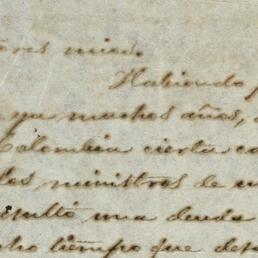 ores mios.
Habiendo
ya muchos años,
Colombia cierta ca
los ministros de
sultó una deuda
cho tiempo que de